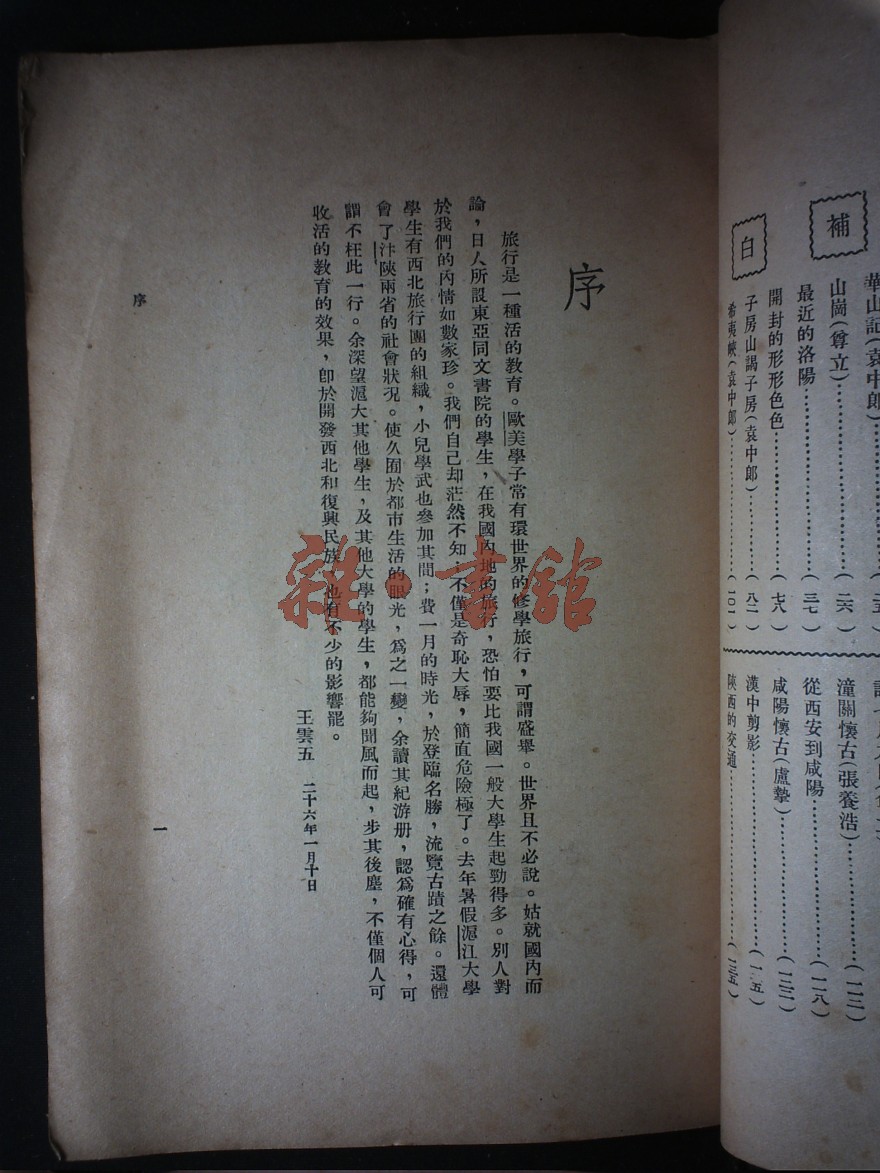 補
白
山崗(尊立)…………(二六)
最近的洛陽…………(三七)
開封的形形色色…………(七八)
子房山謁子房(袁中郎)…………(八二)
希夷峽(袁中郎)…………(一〇一)
潼關懷古(張養浩)…………(一一二)
從西安到咸陽…………(一一八)
咸陽懷古(盧摯)…………(一二二)
漢中剪影
陝西的交通…………(一三五)
華山記(袁中郎)
序
旅行是一種活的教育。歐美學子常有環世界的修學旅行,可謂盛舉。世界且不必說。姑就國內而
論,日人所設東亞同文書院的學生,在我國內地的旅行,恐怕要比我國一般大學生起勁得多。別人對
於我們的內情如數家珍。我們自己却茫然不知;不僅是奇恥大辱,簡直危險極了。去年暑假滬江大學
學生有西北旅行團的組織,小兒學武也參加其間;費一月的時光,於登臨名勝,流覽古蹟之餘。還體
會了汴陝兩省的社會狀況。使久囿於都市生活的眼光,爲之一變,余讀其紀游册,認爲確有心得,可
謂不枉此一行。余深望滬大其他學生,及其他大學的學生,都能夠聞風而起,步其後塵,不僅個人可
收活的教育的效果,卽於開發西北和復興民族,也有不少的影響罷。
王雲五 二十六年一月十日
序
一
雜·書館